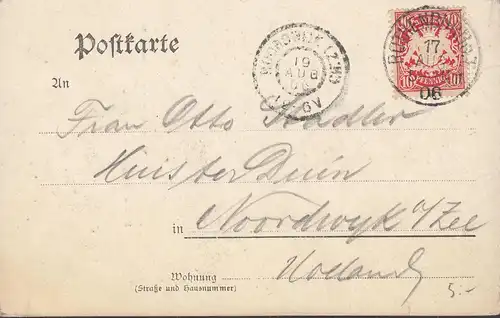 Postkarte
NOORDWIJK (Z:H)
19
AUG
6V
17
06
An
Frau Otto Stadler
Huis ter Duin
in Noordwyk a/Zee
Holland
Wohnung
(Straße und Hausnummer)
5.-